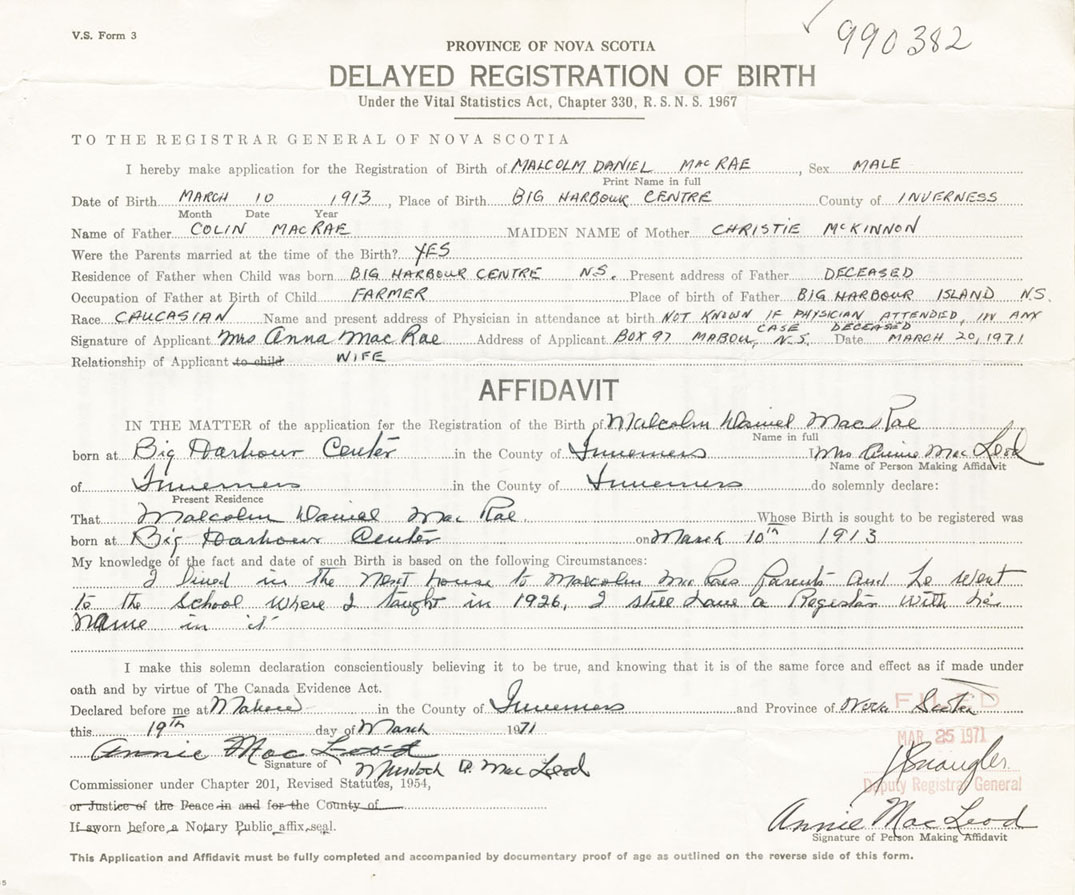 V.S. Form 3
990382
PROVINCE OF NOVA SCOTIA
DELAYED REGISTRATION OF BIRTH
Under the Vital Statistics Act, Chapter 330, R.S.N.S. 1967
TO THE REGISTRAR GENERAL OF NOVA SCOTIA
I hereby make application for the Registration of Birth of MALCOLM DANIEL MACRAE, Sex MALE
Print Name in full
Date of Birth MARCH 10 1913, Place of Birth BIG HARBOUR CENTRE County of INVERNESS
Month Date Year
Name of Father COLIN MACRAE MAIDEN NAME of Mother CHRISTIE MCKINNON
Were the Parents married at the time of the Birth? YES
Residence of Father when Child was born BIG HARBOUR CENTRE N.S. Present address of Father DECEASED
Occupation of Father at Birth of Child FARMER Place of birth of Father BIG HARBOUR ISLAND N.S.
Race CAUCASIAN Name and present address of Physician in attendance at birth NOT KNOWN IF PHYSICIAN ATTENDED, IN ANY
CASE DECEASED
Signature of Applicant Mrs Anna Mac Rae Address of Applicant BOX 97 MABOU, N.S. Date MARCH 20, 1971
Relationship of Applicant to child WIFE
AFFIDAVIT
IN THE MATTER of the application for the Registration of the Birth of Malcolm Daniel Mac Rae
Name in full
born at Big Harbour Center in the County of Inverness I Mrs Annie Mac Leod
Name of Person Making Affidavit
of Inverness in the County of Inverness do solemnly declare:
Present Residence
That Malcolm Daniel Mac Rae Whose Birth is sought to be registered was
born at Big Harbour Center on March 10th 1913
My knowledge of the fact and date of such Birth is based on the following Circumstances:
I lived in the next house to Malcolm Mac Raes parents and he went
to the school where I taught in 1926, I still have a Register with his
name in it
I make this solemn declaration conscientiously believing it to be true, and knowing that it is of the same force and effect as if made under
oath and by virtue of The Canada Evidence Act.
Declared before me at Mabou in the County of Inverness and Province of Nova Scotia
FILED
this 19th day of March 1971
MAR 25 1971
Annie Mac Leod
Signature of Murdoch D. Mac Leod
Commissioner under Chapter 201, Revised Statutes, 1954,
Deputy Registrar General
or Justice of the Peace in and for the County of
Annie Mac Leod
If sworn before a Notary Public affix seal.
Signature of Person Making Affidavit
This Application and Affidavit must be fully completed and accompanied by documentary proof of age as outlined on the reverse side of this form.